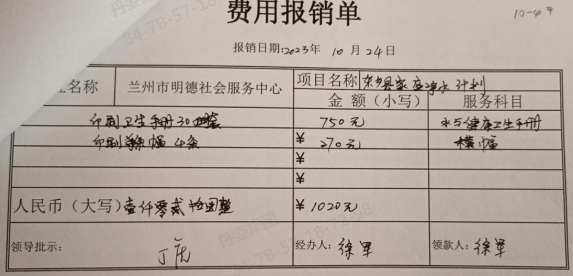 费用报销单
10-6号
报销日期:2023年 10 月 24日
位名称 兰州市明德社会服务中心 项目名称 东乡县家庭净水计划
金 额（小写） 服务科目
印刷卫生手册30套 750元 水与健康卫生手册
印刷条幅4条 ¥270元 横幅
¥
¥
人民币（大写）壹仟零贰拾圆整 ¥1020元
领导批示： 经办人：徐军 领款人：徐军